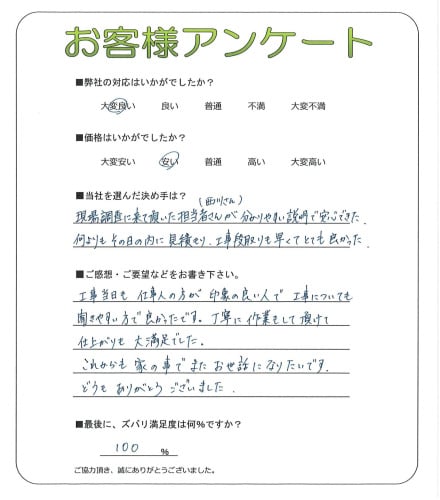 お客様アンケート
■弊社の対応はいかがでしたか？
大変良い 良い 普通 不満 大変不満
■価格はいかがでしたか？
大変安い 安い 普通 高い 大変高い
■当社を選んだ決め手は？
(西川さん)
現場調査に来て頂いた担当者さんが分かりやすい説明で安心できた.
何よりもその日の内に見積もり、工事段取りも早くてとても良かった.
■ご感想・ご要望などをお書き下さい。
工事当日も 仕事人の方が 印象の良い人で 工事についても
聞きやすい方で良かったです。丁寧に作業をして頂けて
仕上がりも 大満足でした。
これからも 家の事で また お世話になりたいです.
どうも ありがとう ございました.
■最後に、ズバリ満足度は何％ですか？
100 ％
ご協力頂き、誠にありがとうございました。